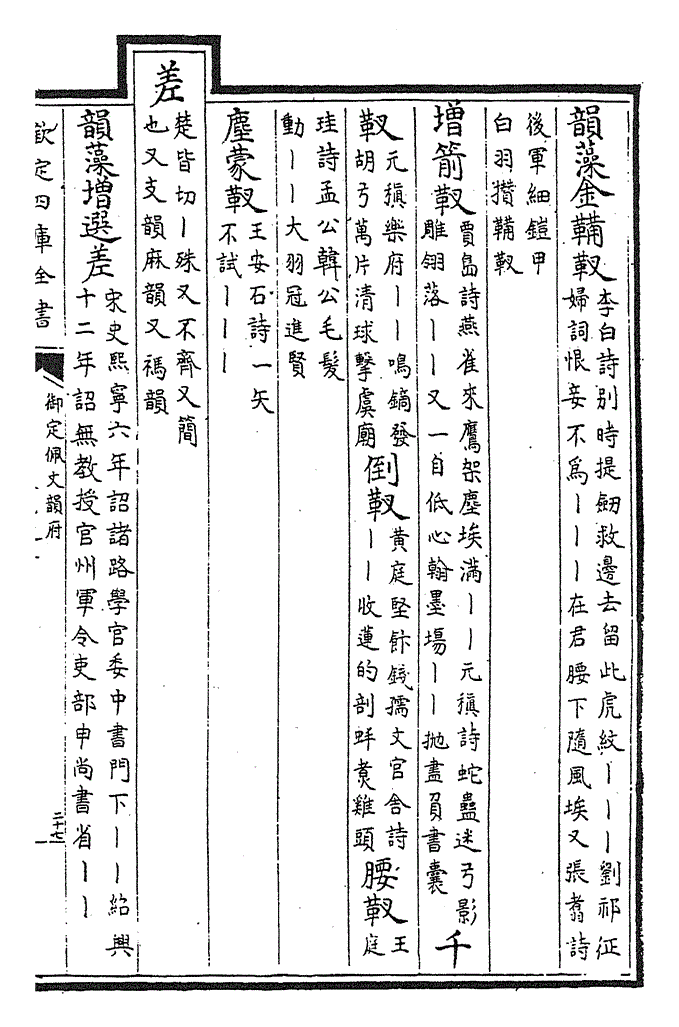 韻藻金鞴靫李白詩别時提劒救邊去留此虎紋丨丨丨劉祁征
婦詞恨妾不爲丨丨丨在君腰下隨風埃又張翥詩
後軍細鎧甲
白羽攢鞴靫
增箭靫賈島詩燕雀來鷹架塵埃滿丨丨元稹詩蛇蠱迷弓影
雕翎落丨丨又一自低心翰墨塲丨丨抛盡負書囊千
靫元稹樂府丨丨鳴鏑發
胡弓萬片清球擊虞廟
倒靫黃庭堅餅錢孺文官舍詩
丨丨收蓮的剖蚌煑雞頭
腰靫王
庭
珪詩孟公韓公毛髮
動丨丨大羽冠進賢
塵蒙靫王安石詩一矢
不試丨丨丨
差
楚皆切丨殊又不齊又簡
也又支韻麻韻又禡韻
韻藻增選差宋史熙寧六年詔諸路學官委中書門下丨丨紹興
十二年詔無教授官州軍令吏部申尚書省丨丨
欽定四庫全書
御定佩文韻府
二十七